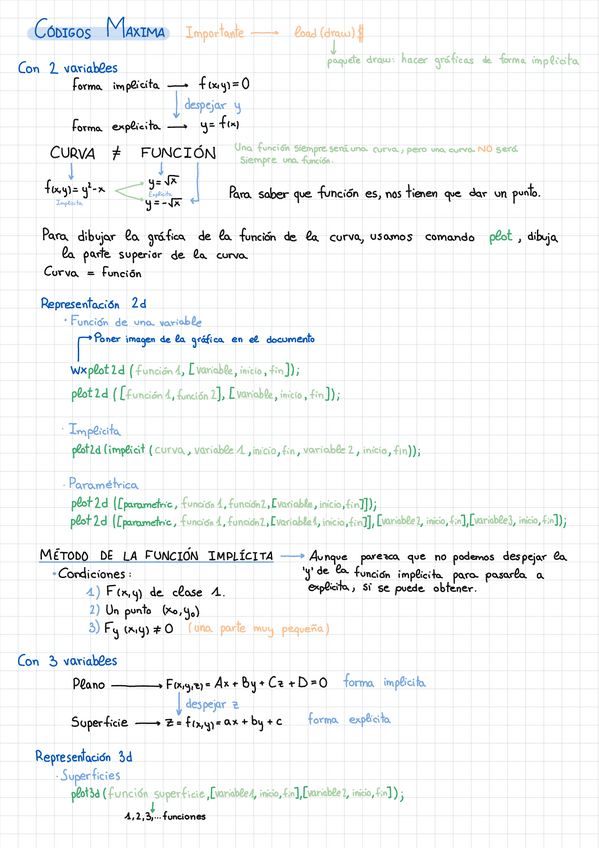 CÓDIGOS MAXIMA Importante → load(draw)$
paquete draw: hacer gráficas de forma implicita
Con 2 variables
forma implicita → f(x,y)=0
despejar y
forma explicita → y=f(x)
CURVA ≠ FUNCIÓN Una función siempre será una curva, pero una curva NO será
siempre una función.
f(x,y)=y²-x y=√x
Implícita Explícita
y=-√x Para saber que función es, nos tienen que dar un punto.
Para dibujar la gráfica de la función de la curva, usamos comando plot, dibuja
la parte superior de la curva
Curva = Función
Representación 2d
· Función de una variable
→ Poner imagen de la gráfica en el documento
wxplot2d (función 1, [variable, inicio, fin]);
plot2d ([función 1, función 2], [variable, inicio, fin]);
· Implicita
plot2d(implicit (curva, variable 1, inicio, fin, variable 2, inicio, fin));
· Paramétrica
plot2d ([parametric, función 1, función2, [variable, inicio, fin]]);
plot2d ([parametric, función 1, función2, [variable1, inicio, fin]], [variable2, inicio, fin], [variable3, inicio, fin]);
MÉTODO DE LA FUNCIÓN IMPLÍCITA → Aunque parezca que no podemos despejar la
· Condiciones: 'y' de la función implicita para pasarla a
1) F(x,y) de clase 1. explícita, si se puede obtener.
2) Un punto (x₀,y₀)
3) Fy (x,y) ≠ 0 (una parte muy pequeña)
Con 3 variables
Plano → F(x,y,z) = Ax + By + Cz + D = 0 forma implícita
despejar z
Superficie → z = f(x,y) = ax + by + c forma explícita
Representación 3d
· Superficies
plot3d (función superficie, [variable1, inicio, fin], [variable2, inicio, fin]);
1,2,3,... funciones